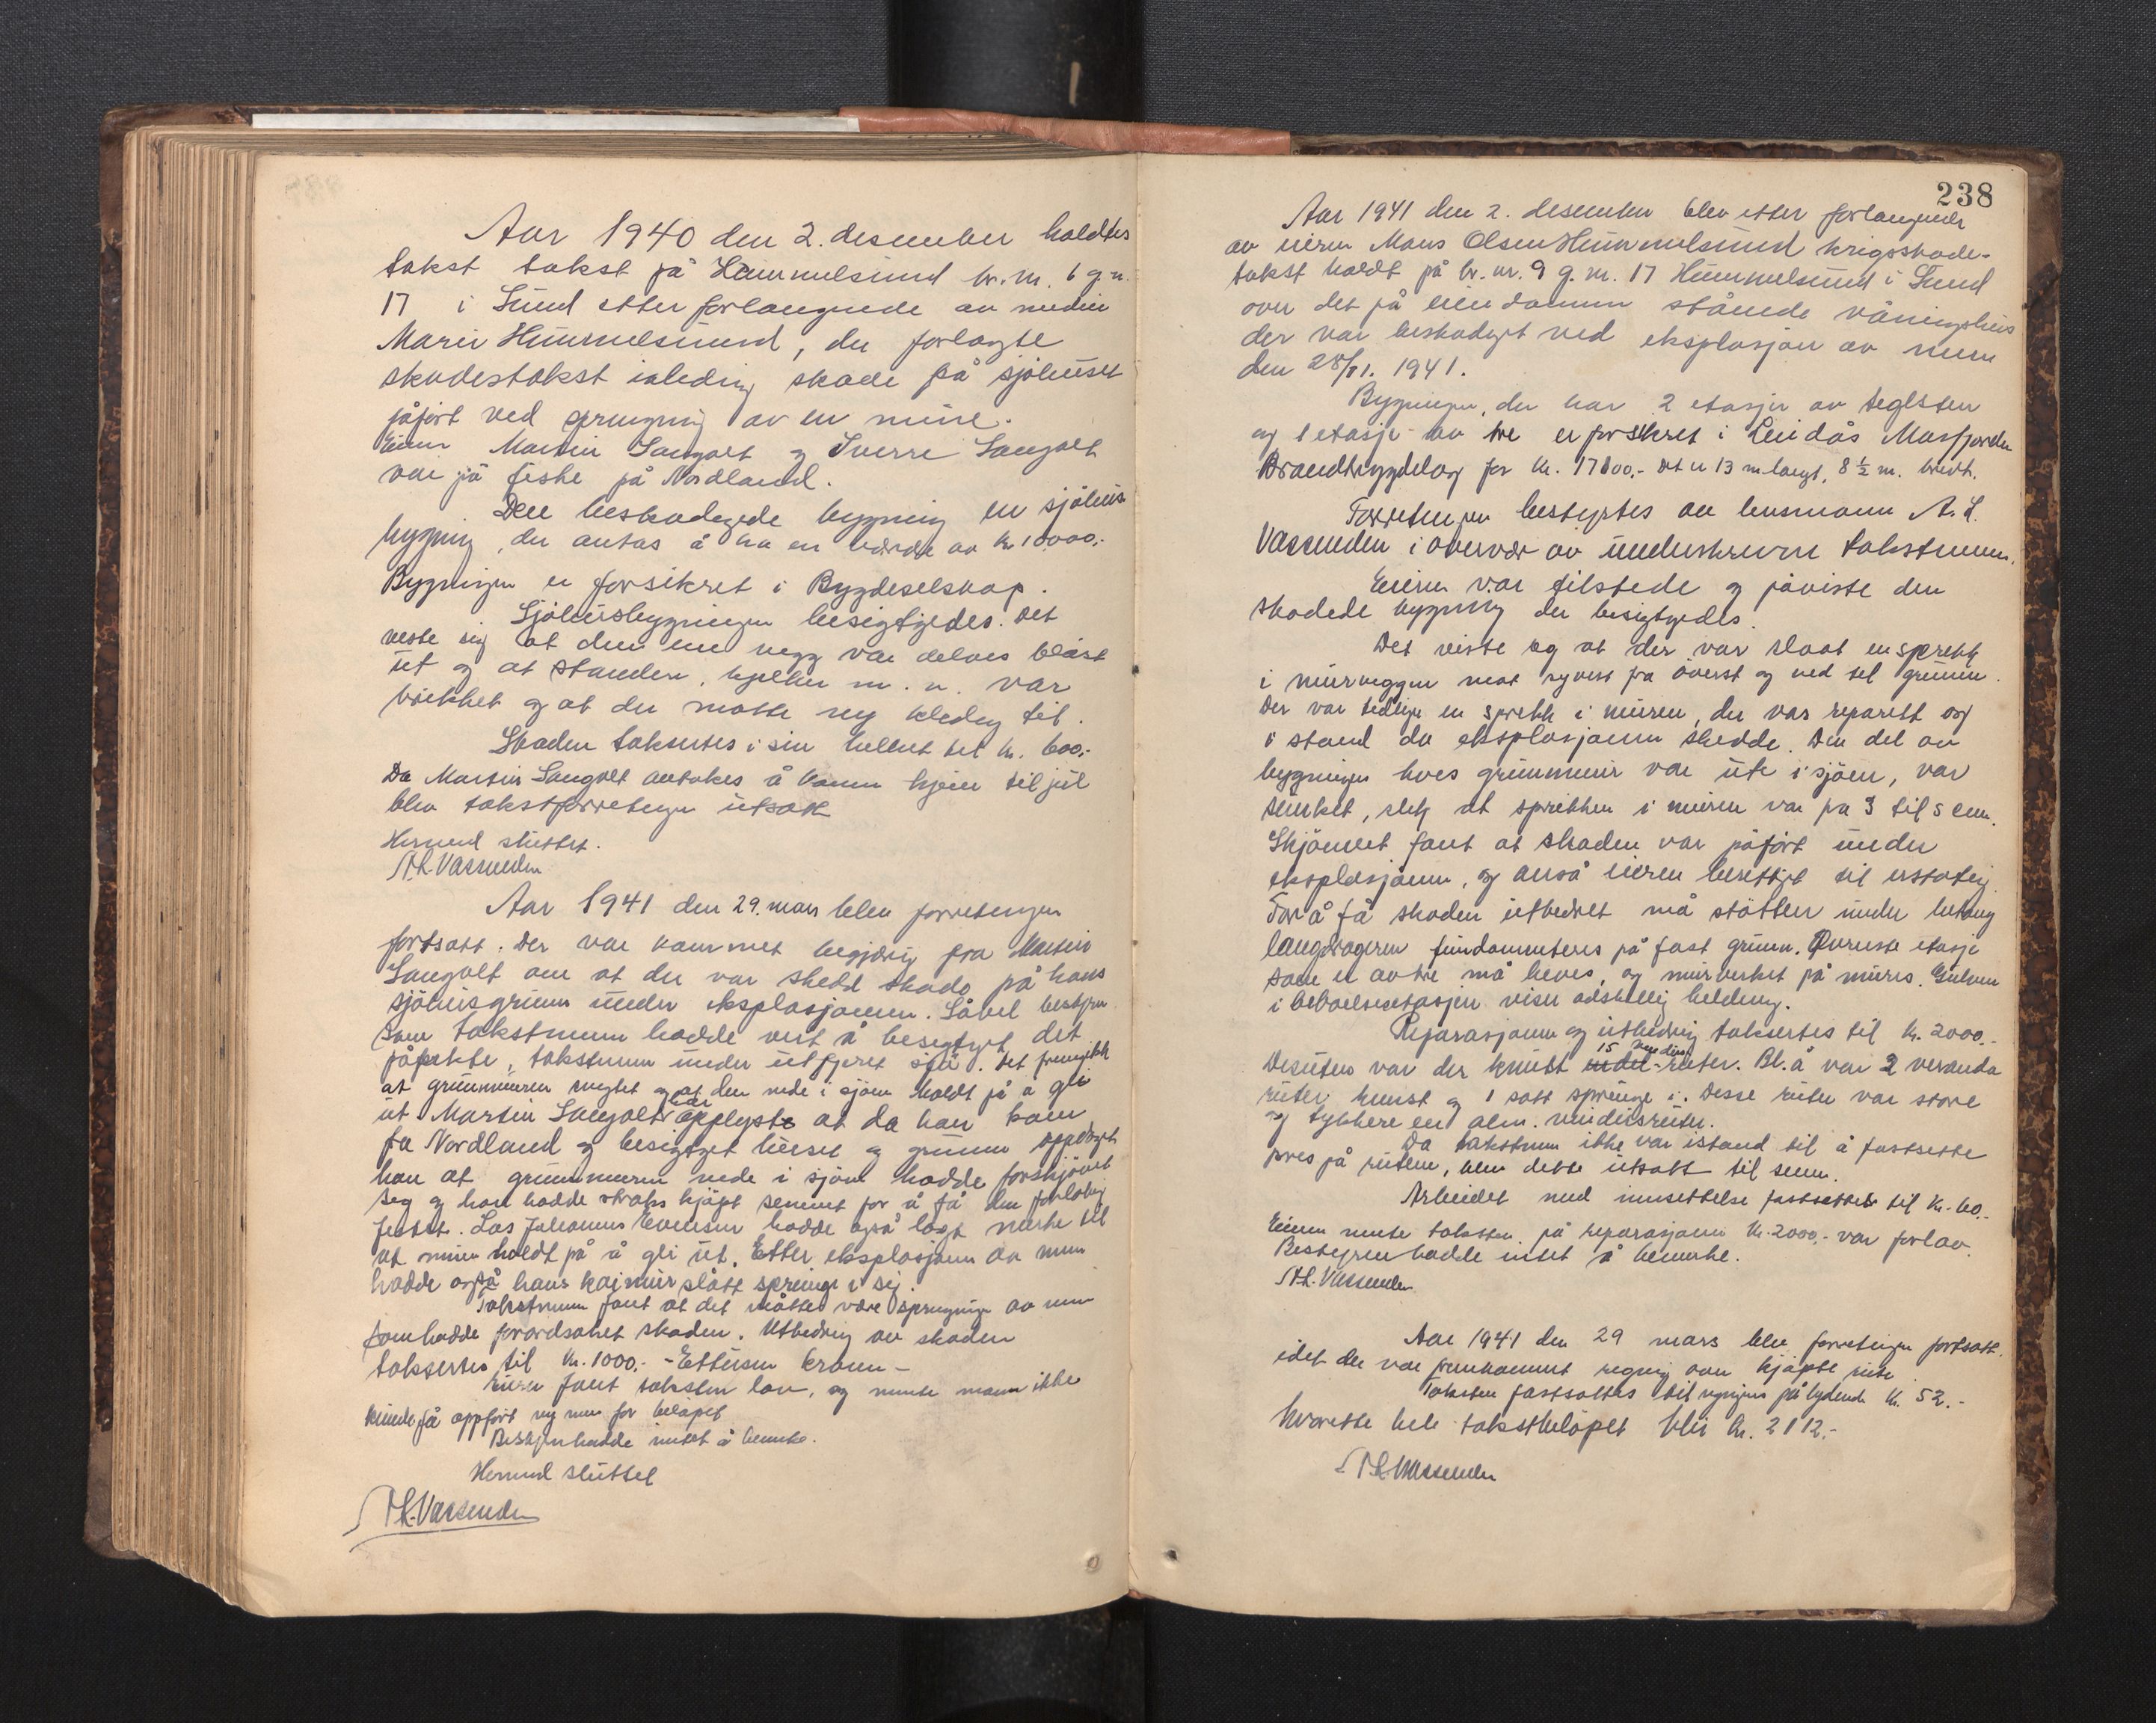 Aar 1940 den 2. desember holdtes
takst takst på Hummelsund br. nr. 6 g.n.
17 i Sund etter forlangende av
Marie Hummelsund, der forlagte
skadestakst skade på sjøhuset
påført ved sprengning av en mine.
Eieren Martin Langolt og Sverre Langolt
var på fiske på Nordland.
Den beskadegede bygning er sjøhus
bygning, der antas å ha en værde av kr 10000.-
Bygningen er forsikret i Bygdeselskap.
Sjøhusbygningen besigtigedes. Det
viste sig at den ene vegg var delvis blåst
ut og at stander, bjelker m. v. var
brekket og at der måtte ny kledng til.
Skaden taksertes i sin helhet til kr. 600.-
Da Martin Langolt antakes å komme hjem til jul
blev takstforretningen utsatt
Hermed sluttet.
A.L. Vassenden
Aar 1941 den 29. mars blev forretningen
fortsatt. Der var kommet begjæring fra Martin
Langolt om at der var skedd skade på hans
sjøhusgrunn under eksplosjonen. Såvel bestyrer
som takstmenn hadde vert å besigtiget det
påpekte, takstmenn under utfjæret sjø. Det fremgikk
at grunnmuren svigtet og at den nede i sjøen holdt på å gli
ut Martin Langolt har opplyst at da han kom
fra Nordland og besigtiget huset og grunnen oppdaget
han at grunnmuren nede i sjøen hadde forskjøvet
seg og han hadde straks kjøpt sement for å få den foreløbig
festet. Lars Johannes hadde også lagt merke til
at muren holdt på å gli ut. Etter eksplosjonen av minen
hadde også hans kaimur slått sprenge i sig.
Takstmenn fant at det måtte være sprengningen av minen
som hadde forårdsaket skaden. Utbedring av skaden
taksertes til kr. 1000.- - Ettusen kroner -
Eieren fant taksten lav, og mente mann ikke
kunde få oppført ny mur for beløpet
Bestyrer hadde intet å bemerke.
Hermed sluttet
A.L. Vassenden
238
Aar 1941 den 2. desember blev etter forlangende
av eieren Mons Olsen Hummelsund krigsskade-
takst holdt på br. nr. 9 g. nr. 17 Hummelsund i Sund
over det på eiendommen stående våningshus
der var beskadeget ved eksplosjon av mine
den 28/11. 1941.
Bygningen, der har 2 etasjer av teglsten
og 1 etasje av tre er forsikret i Lindås Masfjorden
Brandtrygdelag for kr. 17100.- Det er 13 m. langt, 8 ½ m. bredt.
Forretningen bestyrtes av lensmann A. L.
Vassenden i overvær av underskrevne takstmenn.
Eieren var tilstede og påviste den
skadede bygning der besigtigedes.
Det viste seg at der var slaat en sprekk
i murveggen mot nyvest fra øverst og ned til grunnen.
Der var tidligere en sprekk i muren, der var reparert og
i stand da eksplosjonen skedde. Den del av
bygningen hves grunnmur var ute i sjøen, var
sunket, slik at sprekken i muren var fra 3 til 5 cm.
Skjønnet fant at skaden var påført under
eksplosjonen, og anså eieren berettiget til erstating.
For å få skaden utbedret må støtter under
langdrageren fundamenteres på fast grunn. Øverste etasje
som er av tre må heves, og murverket på mures. Gulven
i beboelsesetasjen viser adskillig helding.
Reparasjonen og utbedring taksertes til kr. 2000.-
Desuten var der knust 15 vindus-ruter. Bl. å var 2 veranda
ruter knust og 1 satt sprenge i. Desse ruter var store
og tykkere enn alm. vindusruter.
Da takstmenn ikke var istand til å fastsette
pres på rutene, blev dette utsatt til senere.
Arbeidet med innsettelse fastsettes til kr. 60.-
Eieren mente taksten på reparasjonen kr. 2000.- var for lav.
Bestyreren hadde intet å bemerke.
A.L. Vassenden
Aar 1941 den 29 mars blev forretningen fortsatt.
idet der var fremkommet regning over kjøpte ruter
Taksten fastsattes til regningens på lydende kr. 52.-
hvorette hele takstbeløpet blir kr. 2112.-
A.L. Vassenden